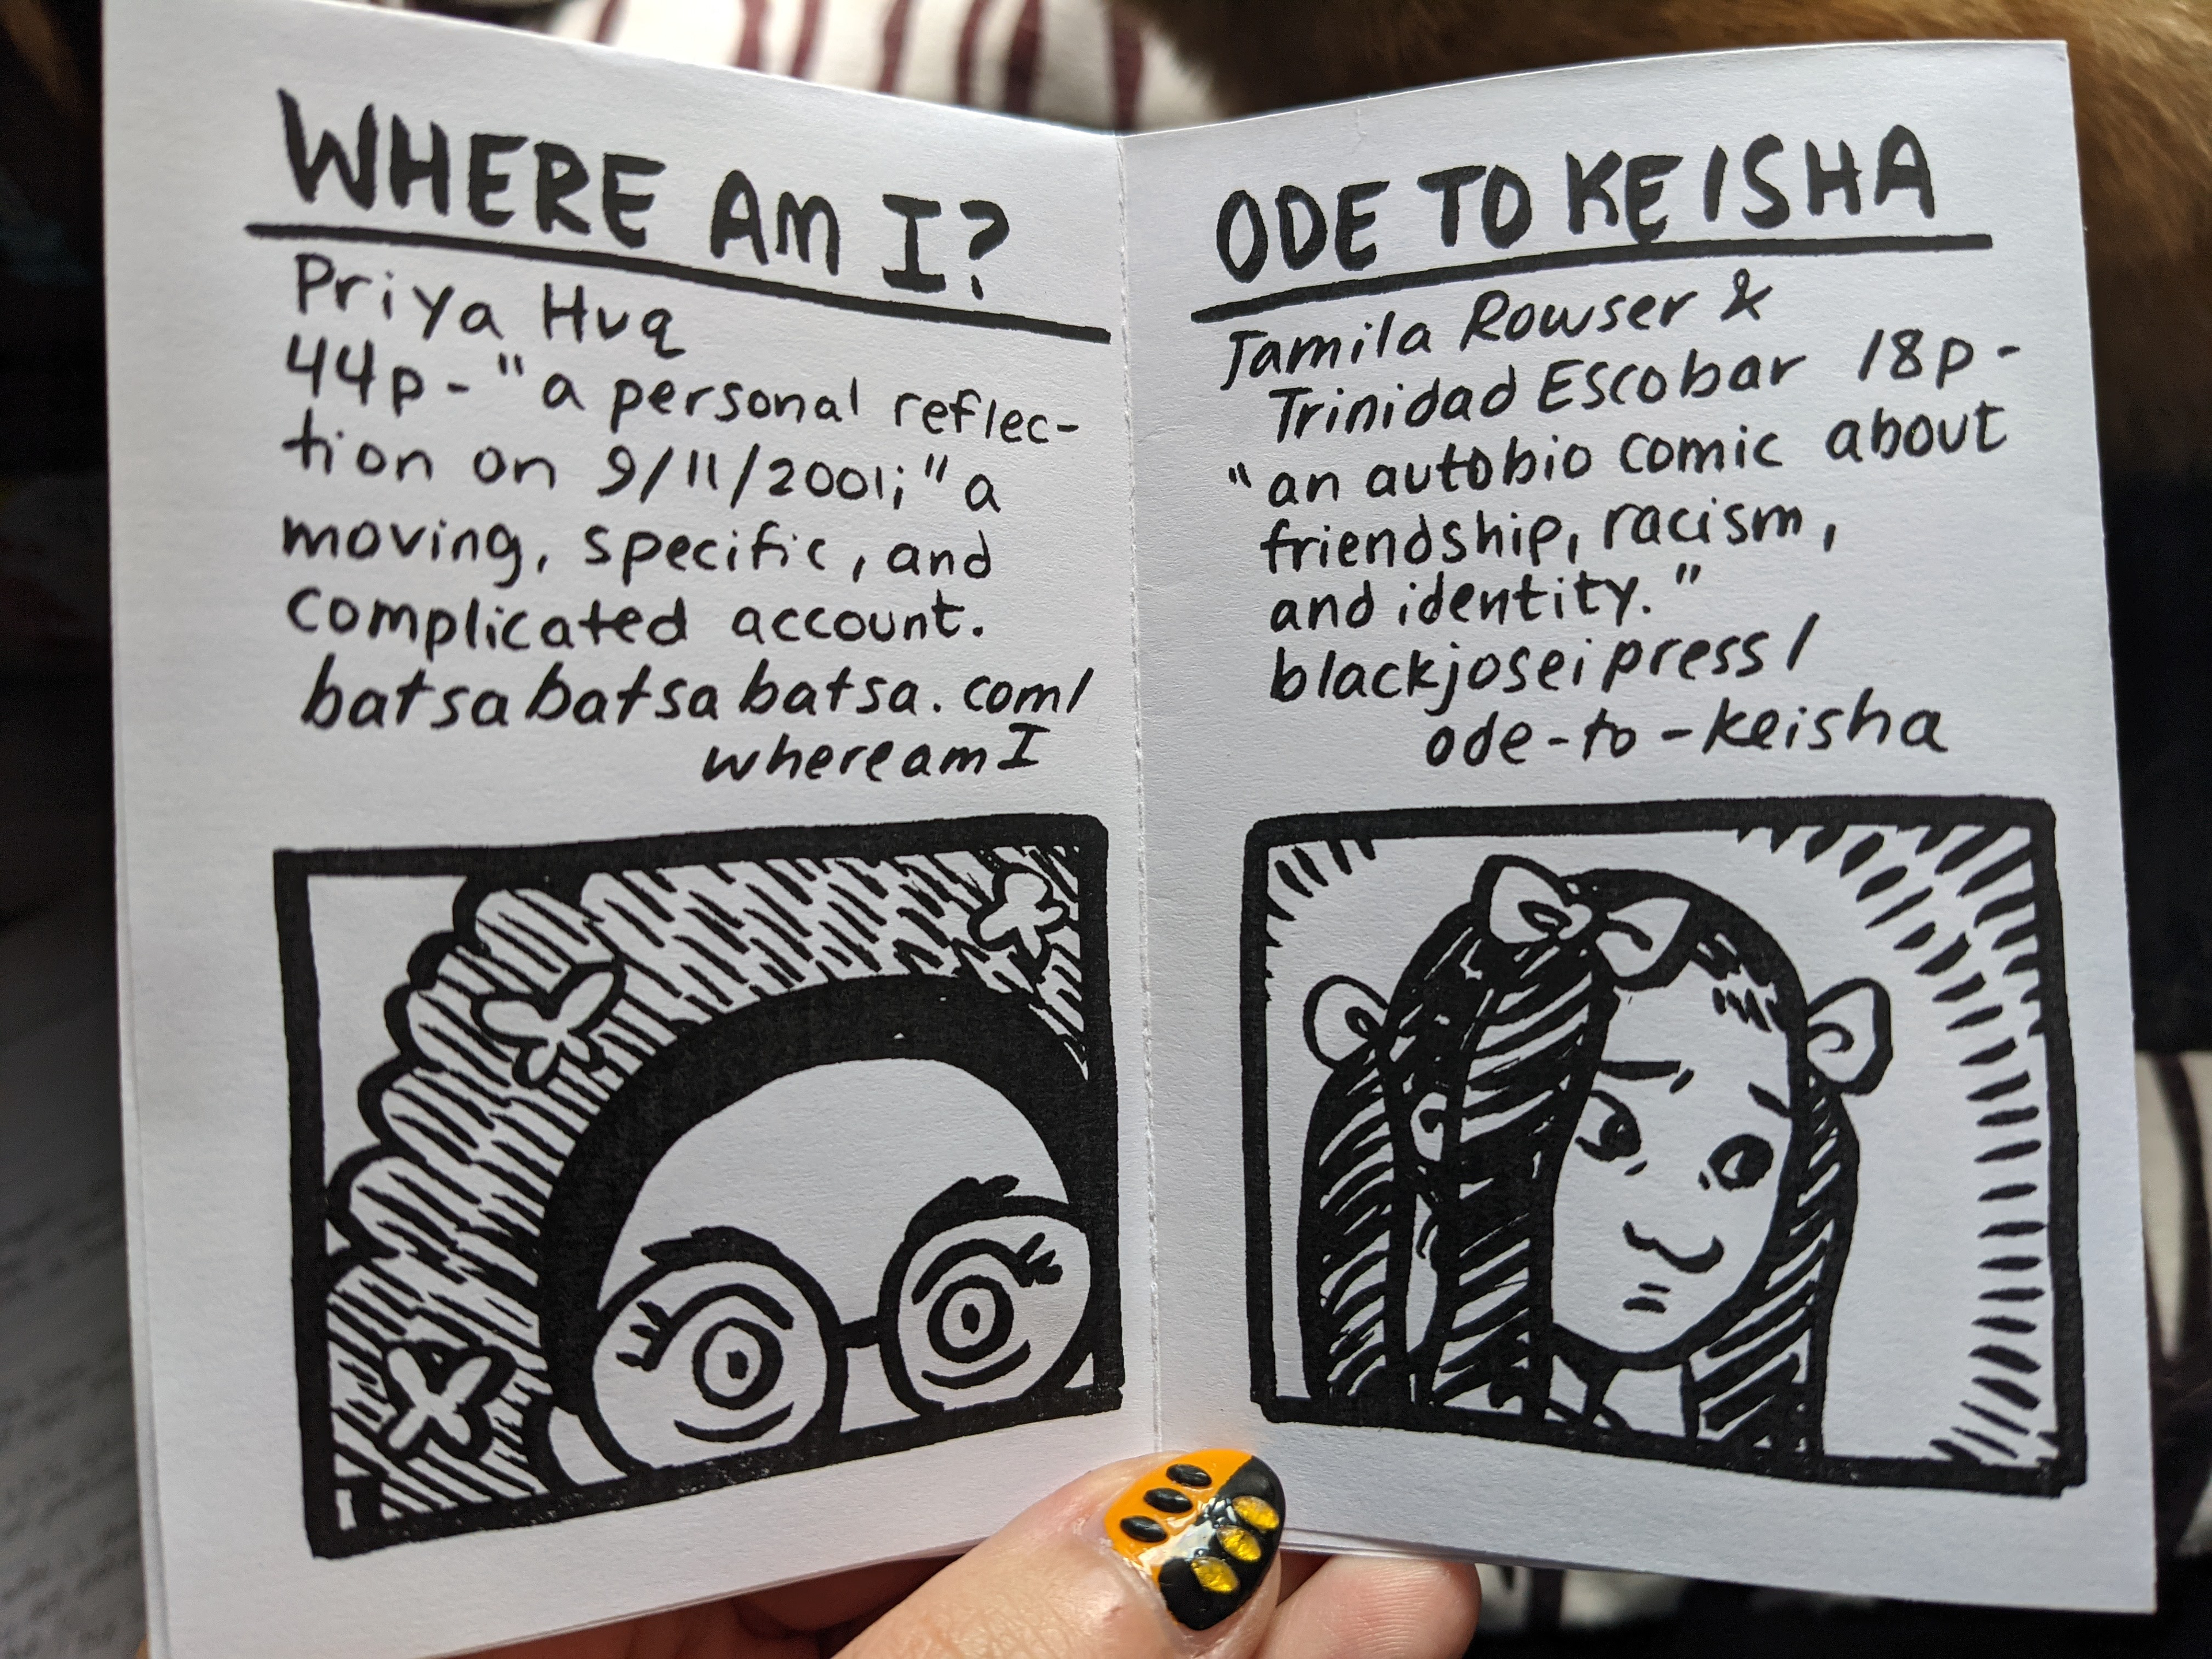 WHERE AM I?
Priya Huq
44p - "a personal reflec-
tion on 9/11/2001;" a
moving, specific, and
complicated account.
batsabatsabatsa.com/
whereamI
ODE TO KEISHA
Jamila Rowser &
Trinidad Escobar 18p -
"an autobio comic about
friendship, racism,
and identity."
blackjoseipress/
ode-to-keisha